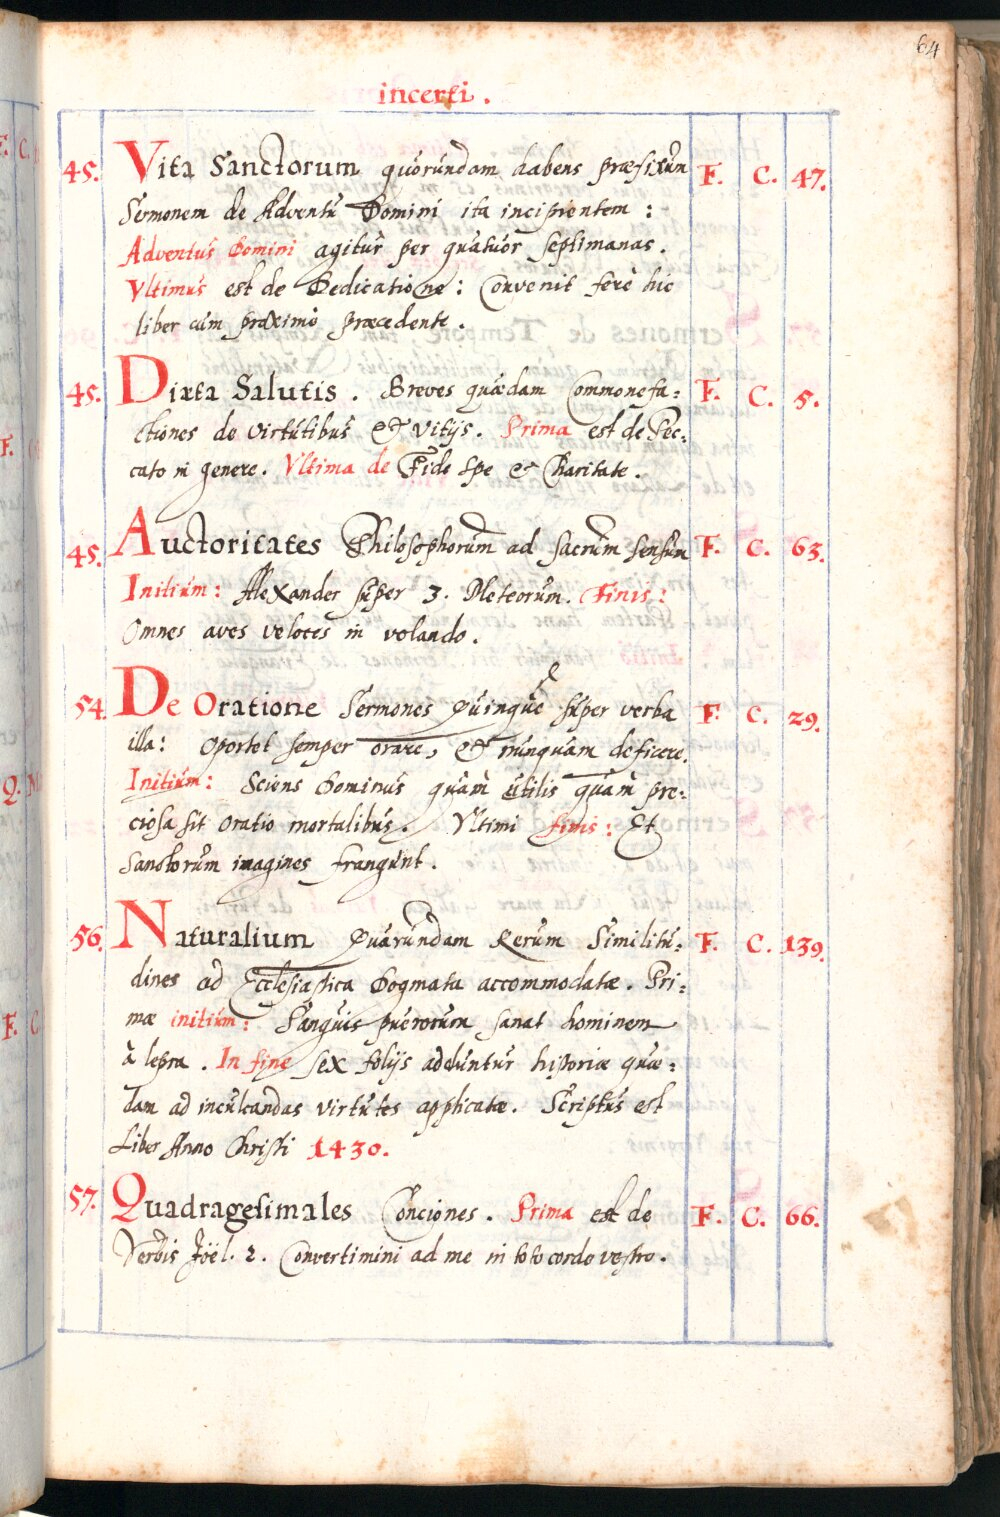 64
incerti.
45. Vita Sanctorum quorundam habens præfixum F. C. 47.
Sermonem de Adventu Domini ita incipientem:
Adventus Domini agitur per quatuor septimanas.
Ultimus est de Dedicatione: Convenit ferè hic
liber cum proximò præcedente.
45. Dixta Salutis. Breves quædam Commonefa= F. C. 5.
ctiones de virtutibus & vitijs. Prima est de Pec=
cato in genere. Ultima de Fide spe & Charitate.
45. Auctoritates Philosophorum ad sacrum sensum F. C. 63.
Initium: Alexander super 3. Meteorum. Finis:
Omnes aves veloces in volando.
54. De Oratione Sermones Quinque super verba F. C. 29.
illa: Oportet semper orare, & nunquam deficere.
Initium: Sciens Dominus quàm utilis quàm pre=
ciosa sit oratio mortalibus. Ultimi finis: Et
Sanctorum imagines frangunt.
56. Naturalium Quarundam Rerum Similitu= F. C. 139.
dines ad Ecclesiastica Dogmata accommodatæ. Pri=
mæ initium: Sanguis puerorum sanat hominem
à lepra. In fine sex folijs adduntur historiæ quæ=
dam ad inculcandas virtutes applicatæ. Scriptus est
Liber Anno Christi 1430.
57. Quadragesimales Conciones. Prima est de F. C. 66.
Verbis Joël. 2. Convertimini ad me in toto corde vestro.